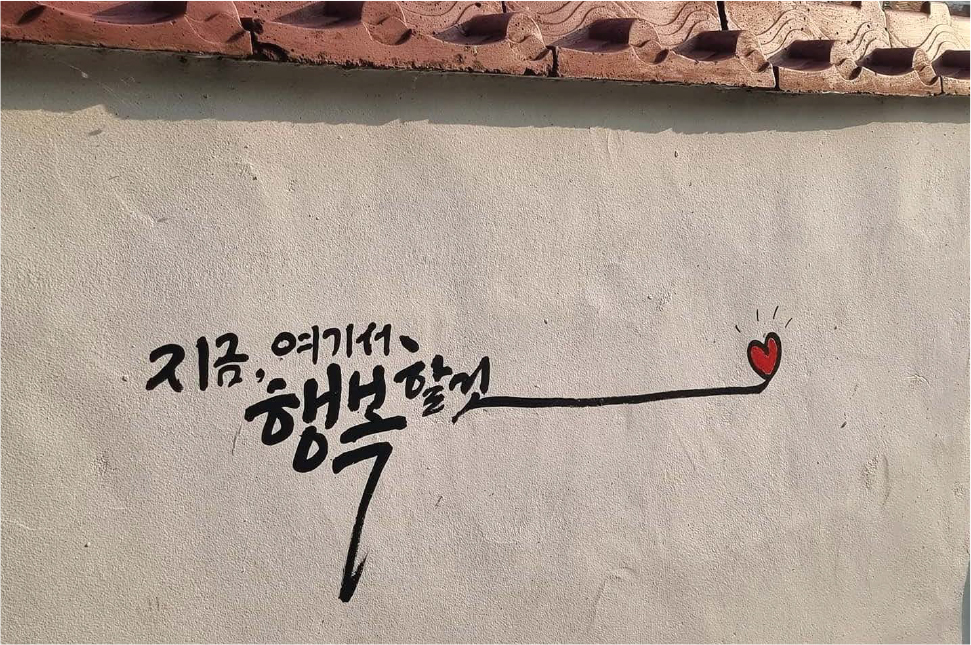 지금, 여기서
행복할것